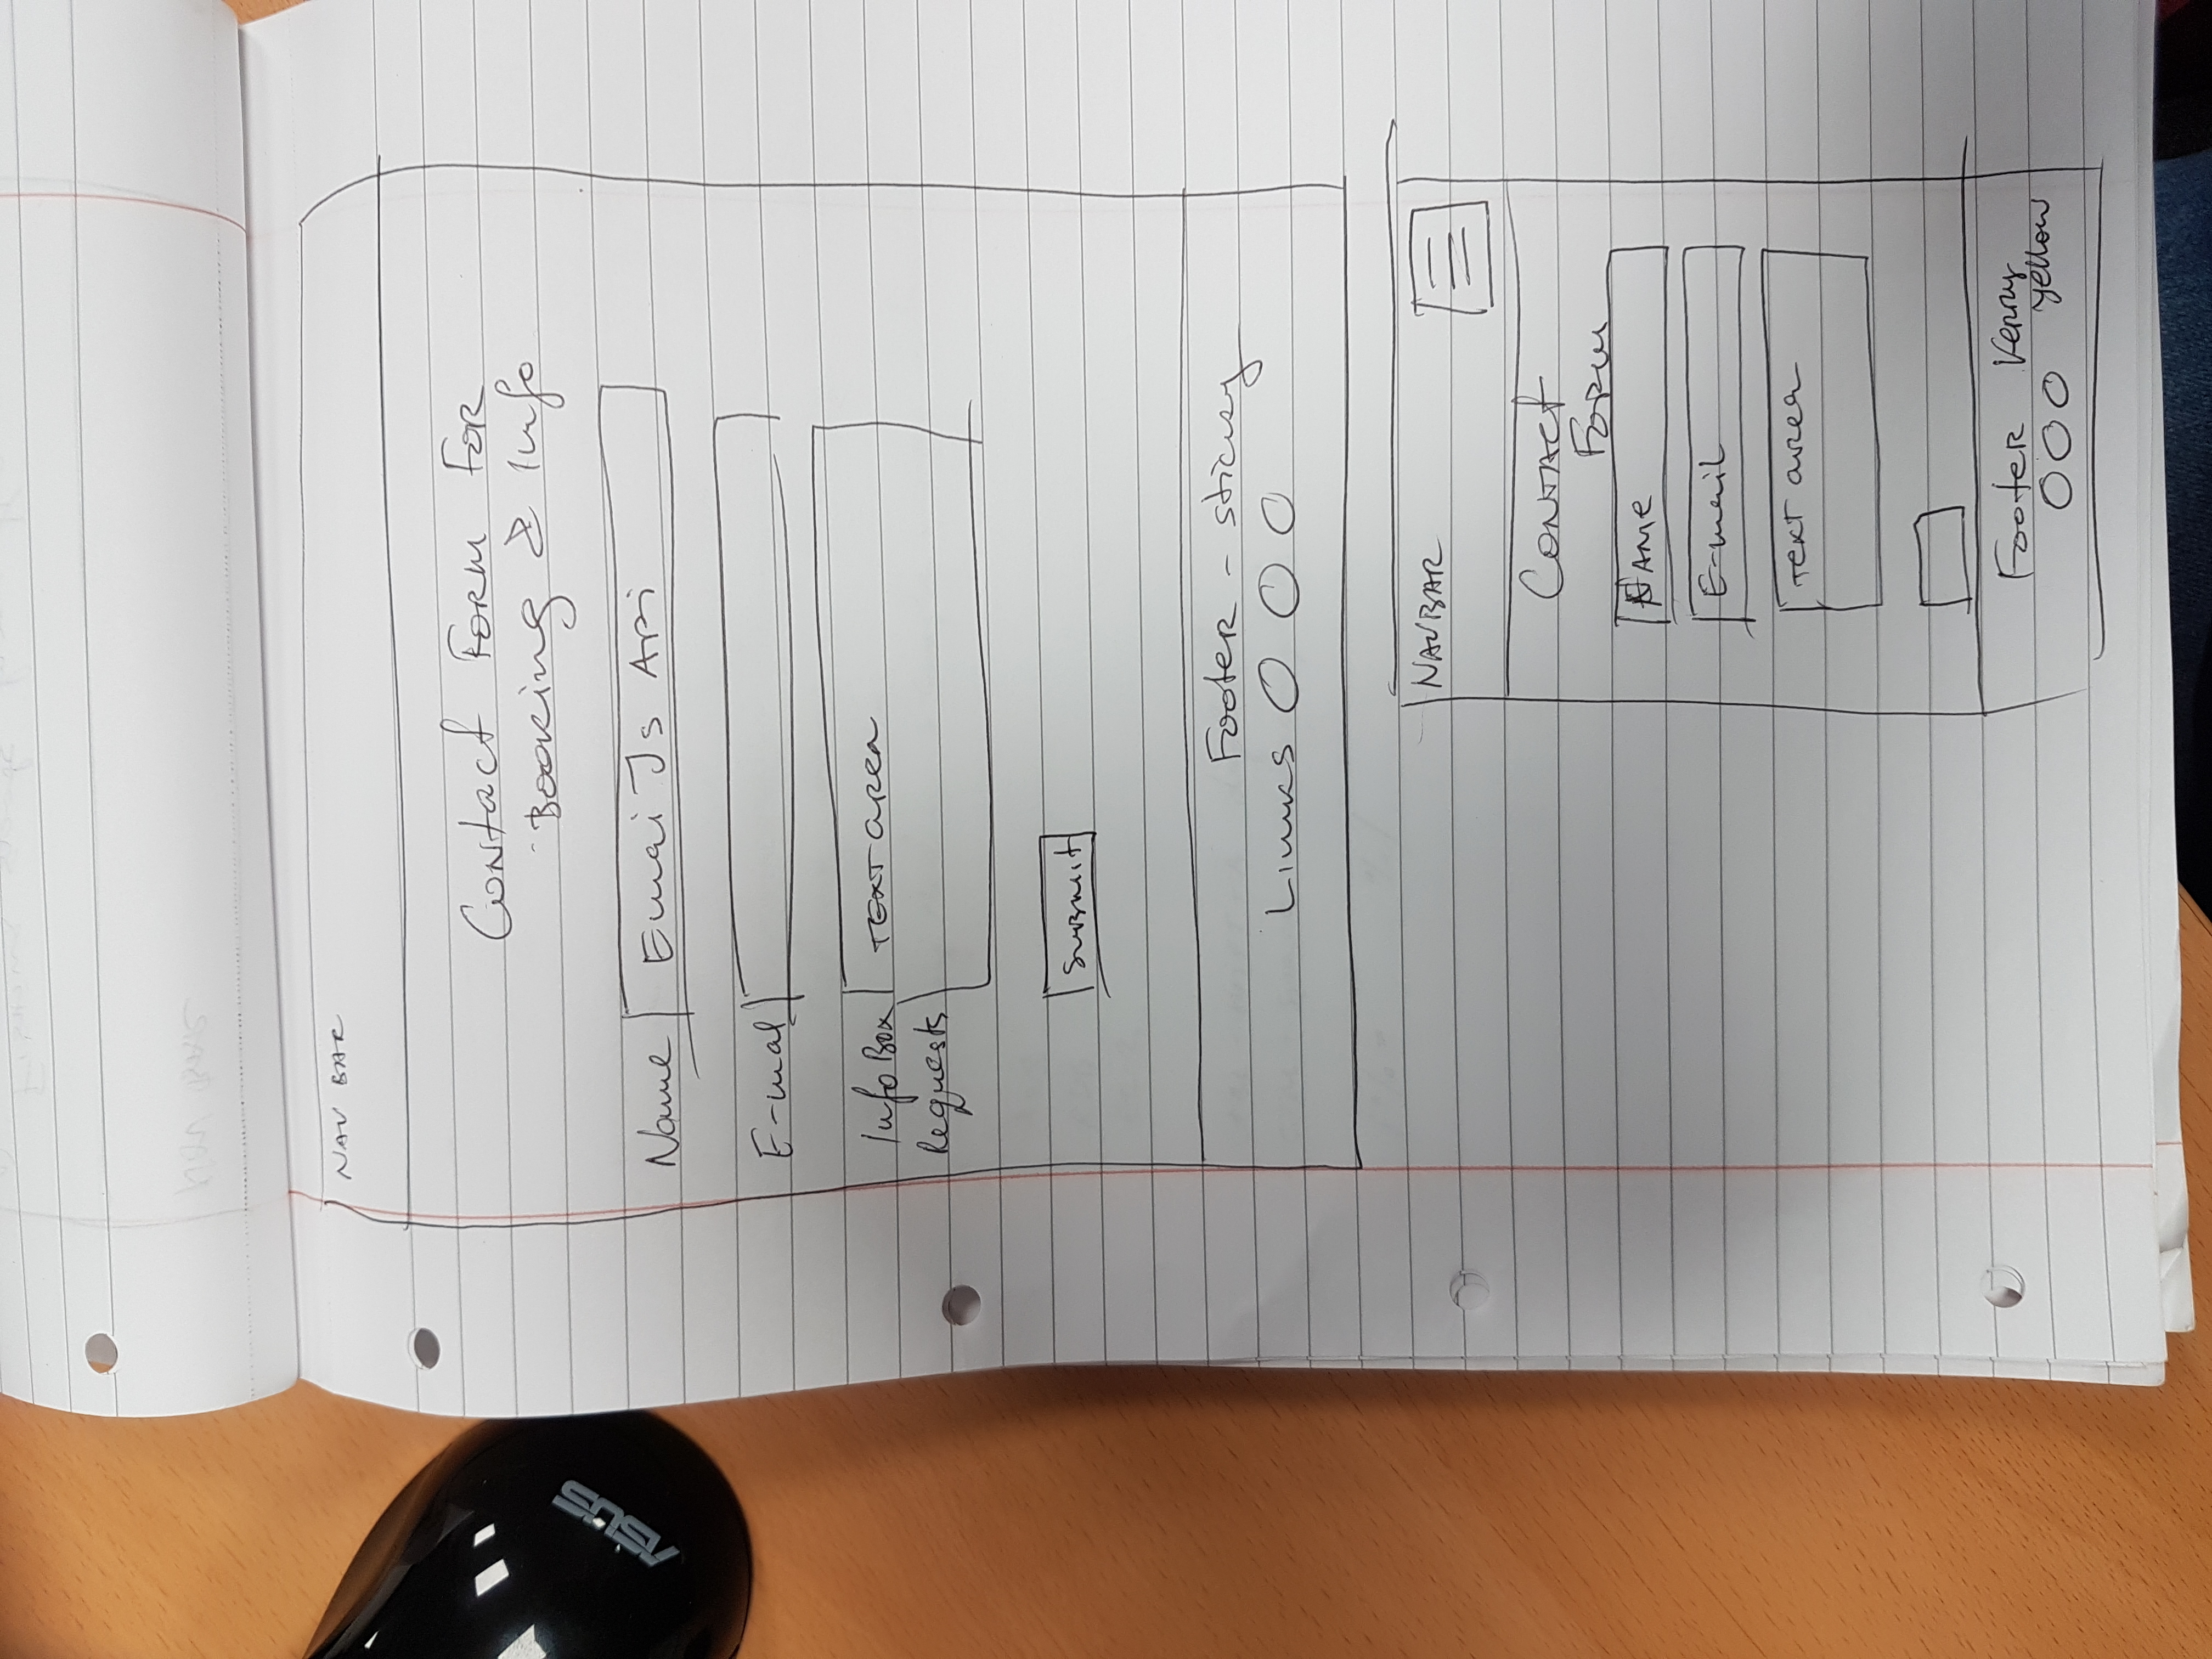 NAV BAR
Contact Form For
Booking & Info
Name
Emai Js Api
E-mail
Info Box
Requests
Text area
Submit
Footer - sticky
Links O O O
NAVBAR
Contact
Form
NAME
E-mail
Text area
Footer
yellow
O O O
ASUS